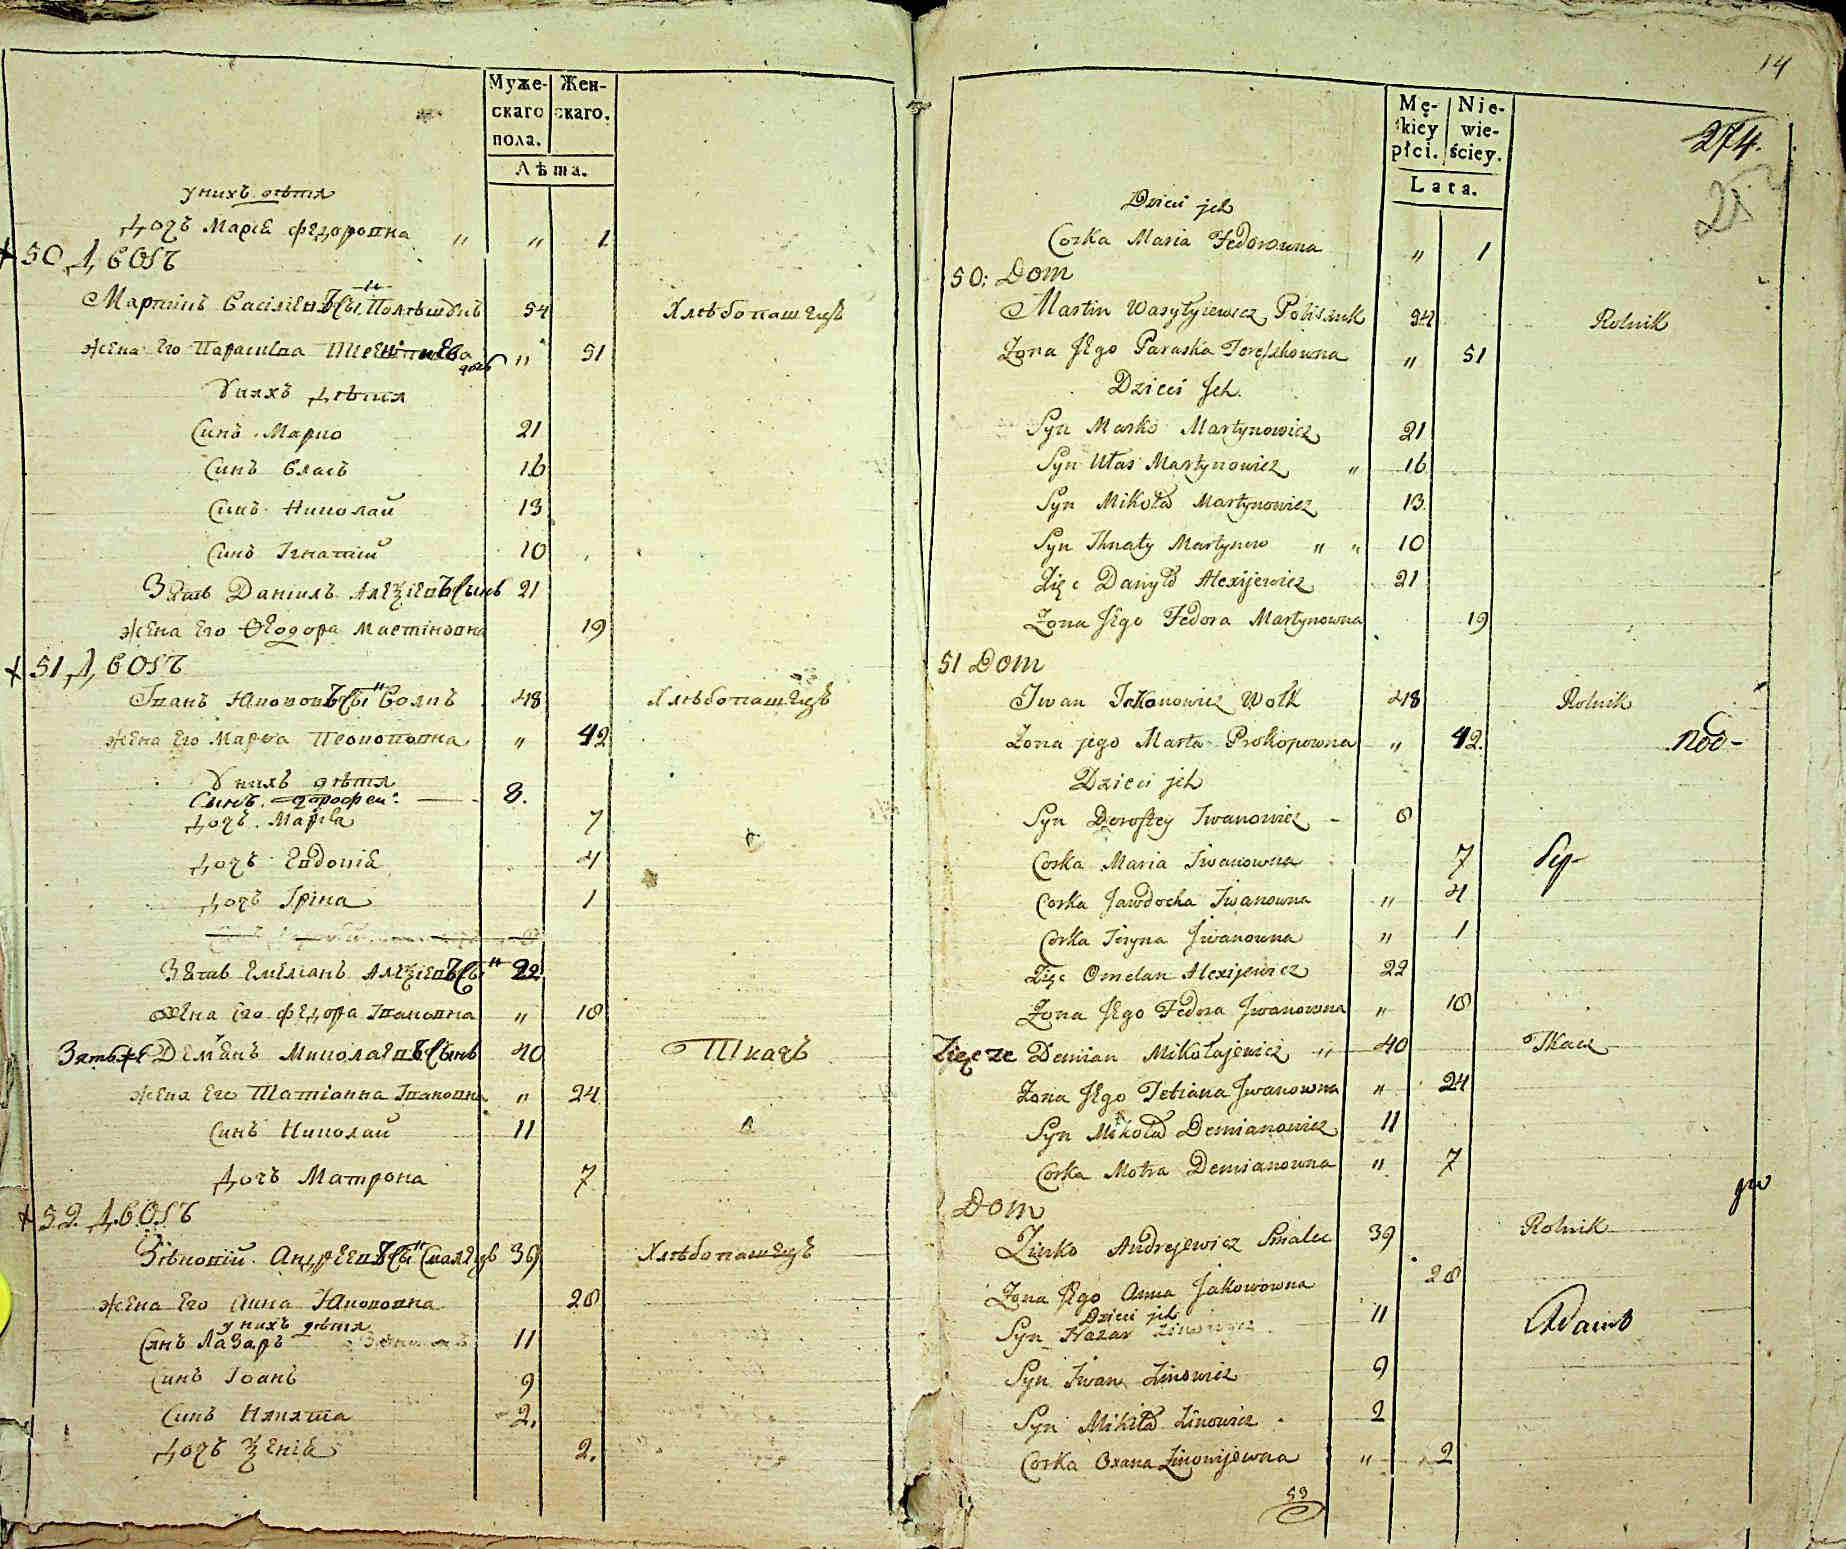 Муже-
скаго
пола.
Жен-
скаго.
Лѣта.
у нихъ дѣти
дочъ Марія Федоровна „ „ 1
50 Двоъ
Мартинъ Василіевъ Сынъ Полѣшукъ 54 Хлѣбопашецъ
жена его Параскева дочь „ 51
У нихъ дѣти
Синъ Марко 21
Синъ Власъ 16
Синъ Николай 13
Синъ Ігнатій 10
Зять Даніилъ Алеѯіевъ Сынъ 21
жена его Ѳеодора Мартіновна 19
51 Двоъ
Іванъ Юковъ Сынъ Волкъ 48 Хлѣбопашецъ
жена его Марѳа Прокоповна „ 42
У нихъ дѣти
Сынъ Дорофей 8.
дочъ Марія 7
дочъ Евдокія 4
дочъ Іріна 1
Зять Емеліанъ Алеѯіевъ Сынъ 22
жена его Федора Івановна „ 18
Зять Деміанъ Миколаевъ Сынъ 40 Ткачъ
жена его Татіанна Івановна „ 24
Синъ Николай 11
дочъ Матрона 7
52. Двоъ
Зѣновій Андреевъ Сынъ Смалецъ 39 Хлѣбопашецъ
жена его Анна Юковна 28
у нихъ дѣти
Синъ Лазаръ 11
Синъ Іоанъ 9
Синъ Никита 2.
дочъ Ѯенія 2.
14
Mę-
skiey
płci.
Nie-
wie-
ściey.
Lata.
274.
Dzieci jch
Corka Maria Fedorowna „ 1
50: Dom
Martin Wasylyiewicz Poliszuk 54 Rolnik
Żona Jego Paraska Tereszkowna „ 51
Dzieci Jch.
Syn Marko Martynowicz 21
Syn Ułas Martynowicz „ 16
Syn Mikoła Martynowicz 13
Syn Ihnaty Martynow „ „ 10
Zięc Danyło Alexijewicz 21
Żona Jego Fedora Martynowna 19
51 Dom
Iwan Jakonowicz Wołk 48 Rolnik
Żona jego Marta Prokopowna „ 42.
Dzieci jch
Syn Doroftey Iwanowicz - 8
Corka Maria Iwanowna 7
Corka Jawdocha Iwanowna „ 4
Corka Jryna Jwanowna „ 1
Zięc Omelan Alexijewicz 22
Żona Jego Fedora Jwanowna „ 18
Zięcze Demian Mikołajewicz „ 40 Tkacz
Żona Jego Tetiana Jwanowna „ 24
Syn Mikoła Demianowicz 11
Corka Motra Demianowna „ 7
Dom
Zinko Andrejewicz Smalec 39 Rolnik
Żona Jego Anna Jakowowna 28
Dzieci jch
Syn Nazar 11
Syn Iwan Zinowicz 9
Syn Mikita Zinowicz 2
Corka Oxana Zinowijewna „ 2
53